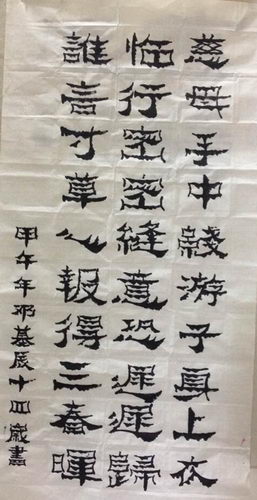 慈母手中綫游子身上衣
临行密密縫意恐遲遲歸
誰言寸草心報得三春暉
甲午年基辰十四歲書